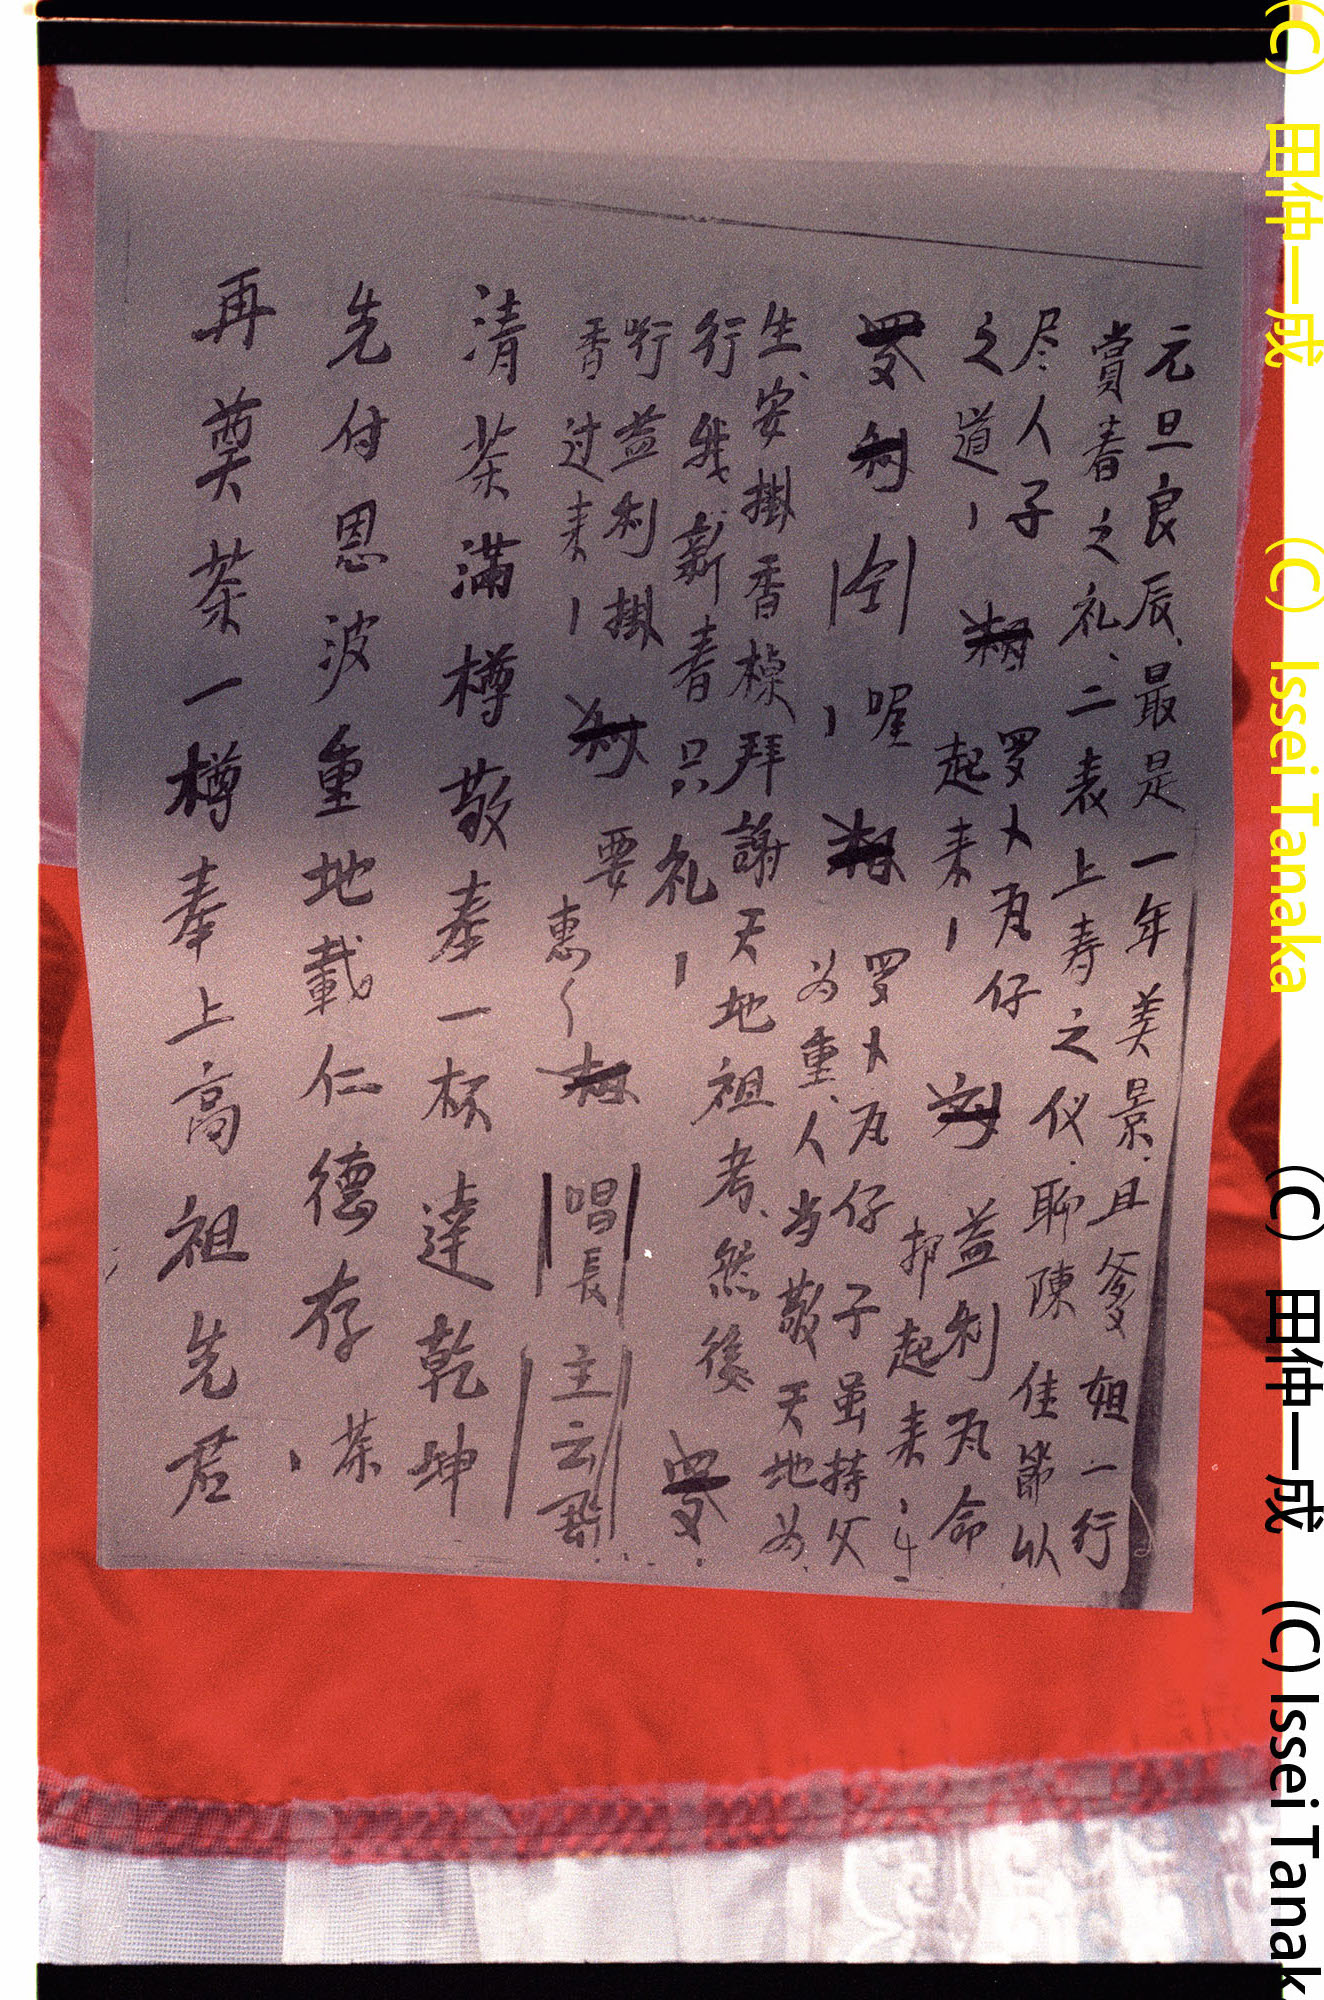 元旦良辰、最是一年美景、且爹姐一行
賞春之礼、二表上寿之仪、聊陳佳節以
尽人子 罗卜为仔 益利为命
之道、 起来、 却起来、
罗卜为仔 子虽持父
为重、人当敬天地为
生、安掛香桌拜謝天地祖考、然後
行我新春只礼、
行 益利掛 要
香过来、 惠
唱長
主云
清茶滿樽敬奉一杯達乾坤
先付恩波重地載仁德存 茶、
再奠茶一樽奉上高祖先君
(C) 田仲一成 (C) Issei Tanaka
(C) 田仲一成 (C) Issei Tanak